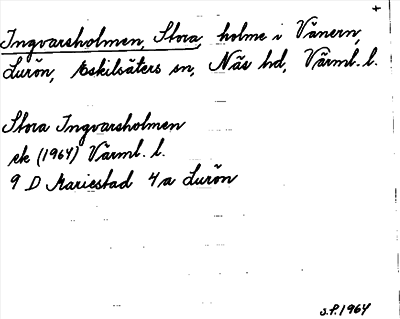 +
Ingvarsholmen, Stora, holme i Vänern,
Lurön, Eskilsäters sn, Näs hd, Värml. l.
Stora Ingvarsholmen
ek (1964) Värml. l.
9 D Mariestad 4a Lurön
S.P. 1964